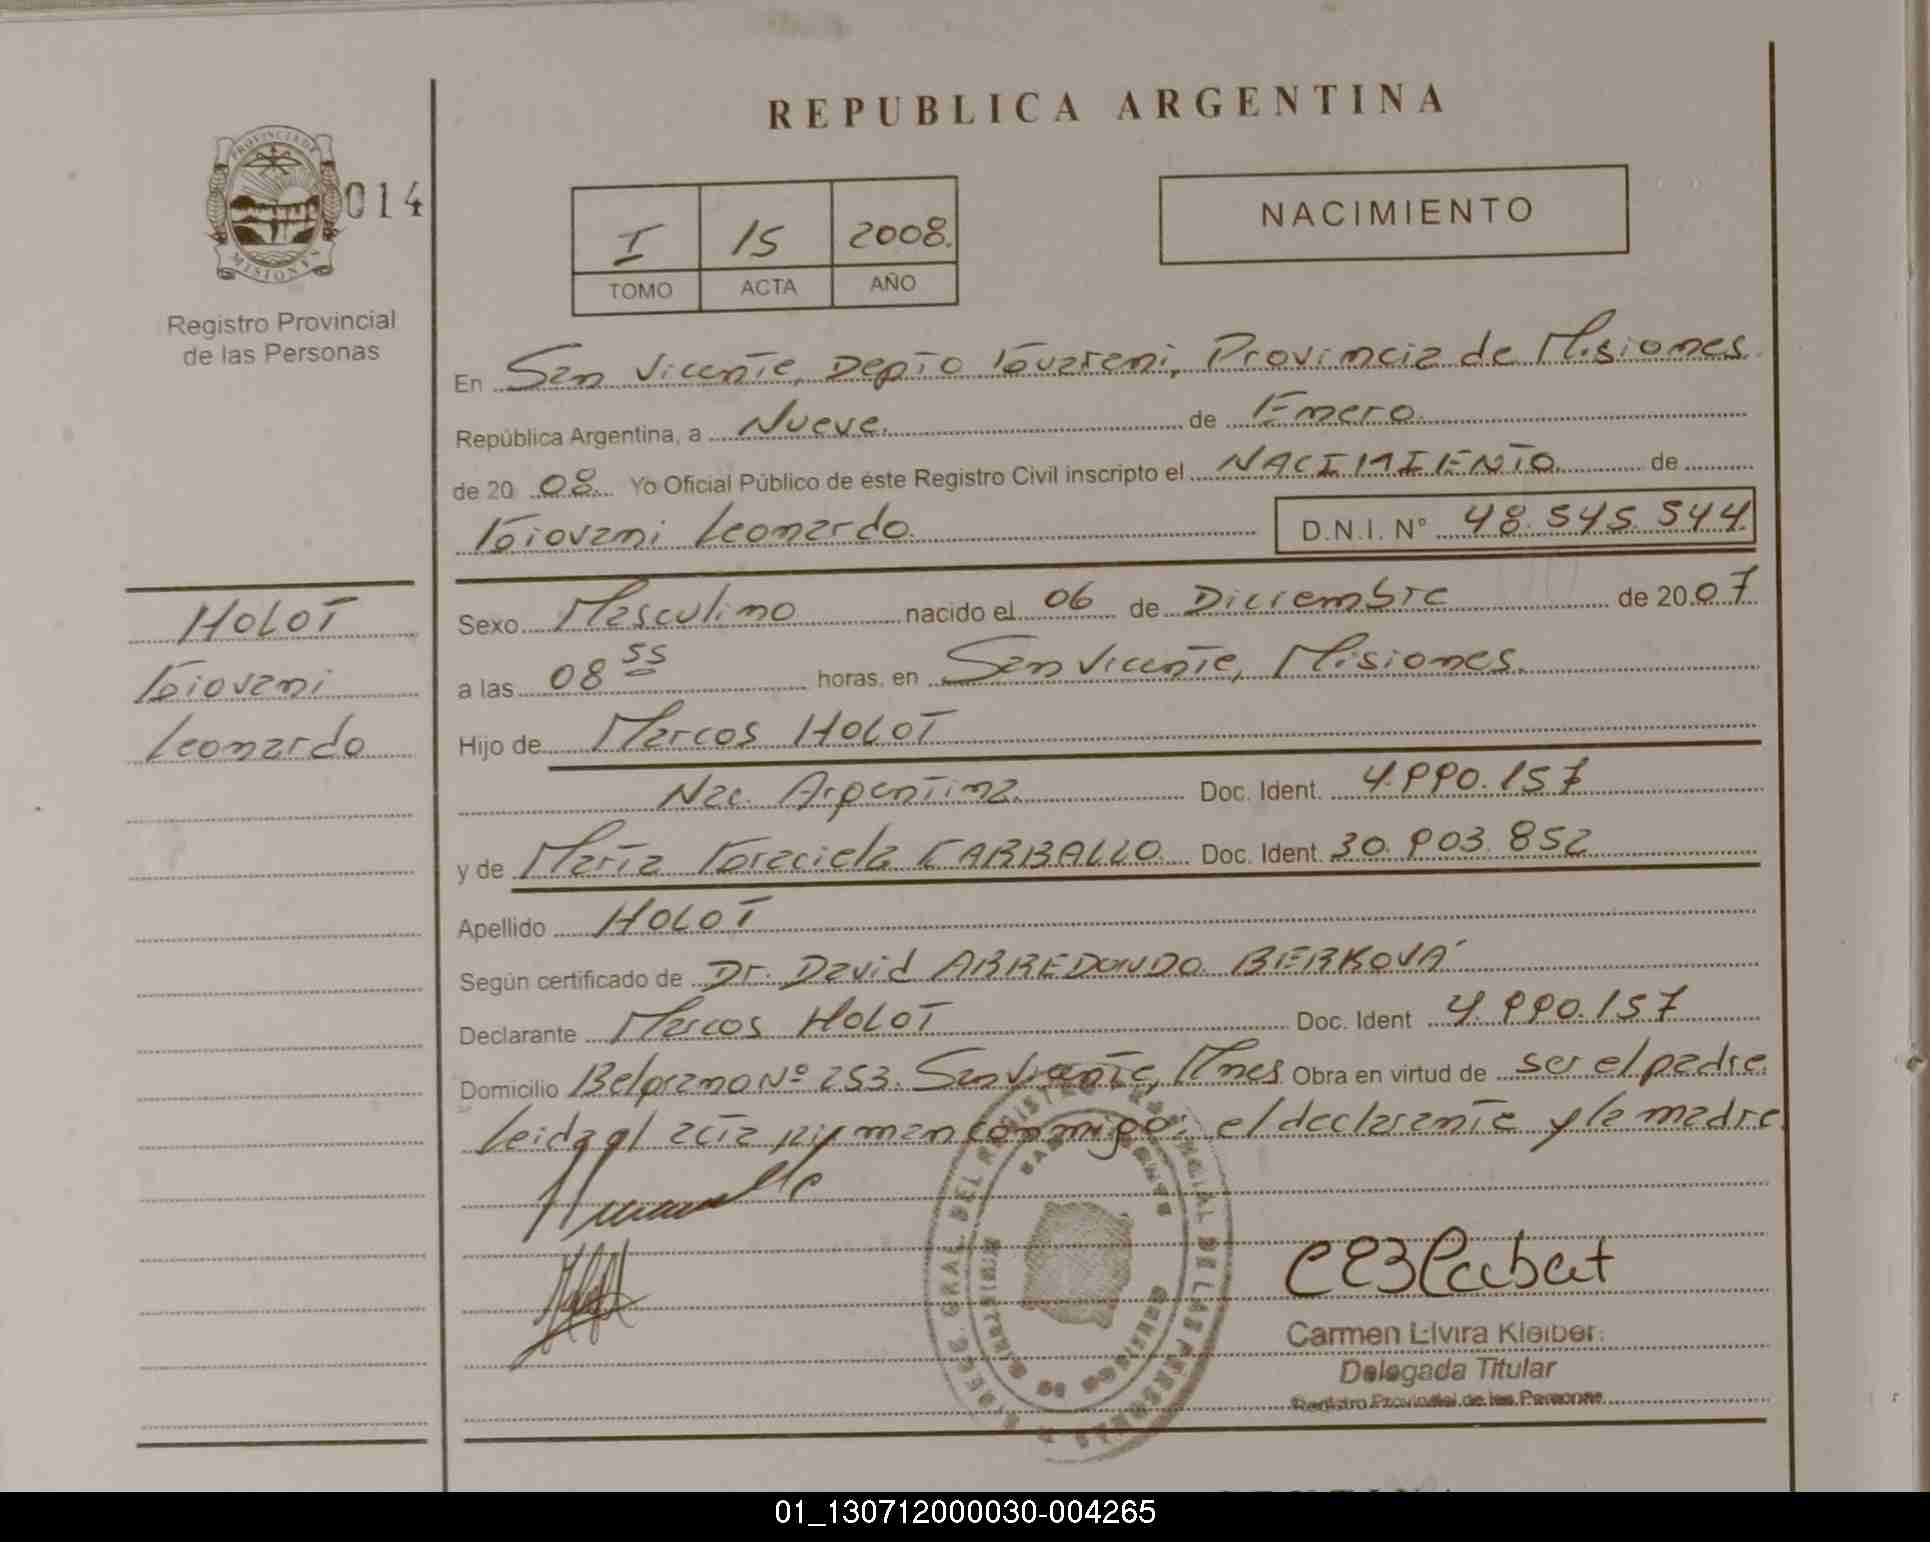 REPUBLICA ARGENTINA
PROVINCIA DE
MISIONES
014
Registro Provincial
de las Personas
I 15 2008.
TOMO ACTA AÑO
NACIMIENTO
En San Vicente, Depto Guarani, Provincia de Misiones.
República Argentina, a Nueve. de Enero.
de 2008. Yo Oficial Público de éste Registro Civil inscripto el NACIMIENTO de
Giovani Leonardo. D.N.I. Nº 48.545.544.
HOLOT
Giovani
Leonardo
Sexo Masculino nacido el 06 de Diciembre de 2007
a las 08 55 horas, en San Vicente, Misiones.
Hijo de Marcos HOLOT
Nac. Argentina Doc. Ident. 4.990.157
y de María Graciela CARBALLO Doc. Ident. 30.903.852
Apellido HOLOT
Según certificado de Dr. David ARREDONDO BERKOVA
Declarante Marcos HOLOT Doc. Ident 4.990.157
Domicilio Belgrano Nº 253. San Vicente, Mnes Obra en virtud de ser el padre.
Leida el acta firman conmigo: el declarante y la madre.
Carmen Elvira Kleiber.
Delegada Titular
Registro Provincial de las Personas
01_130712000030-004265